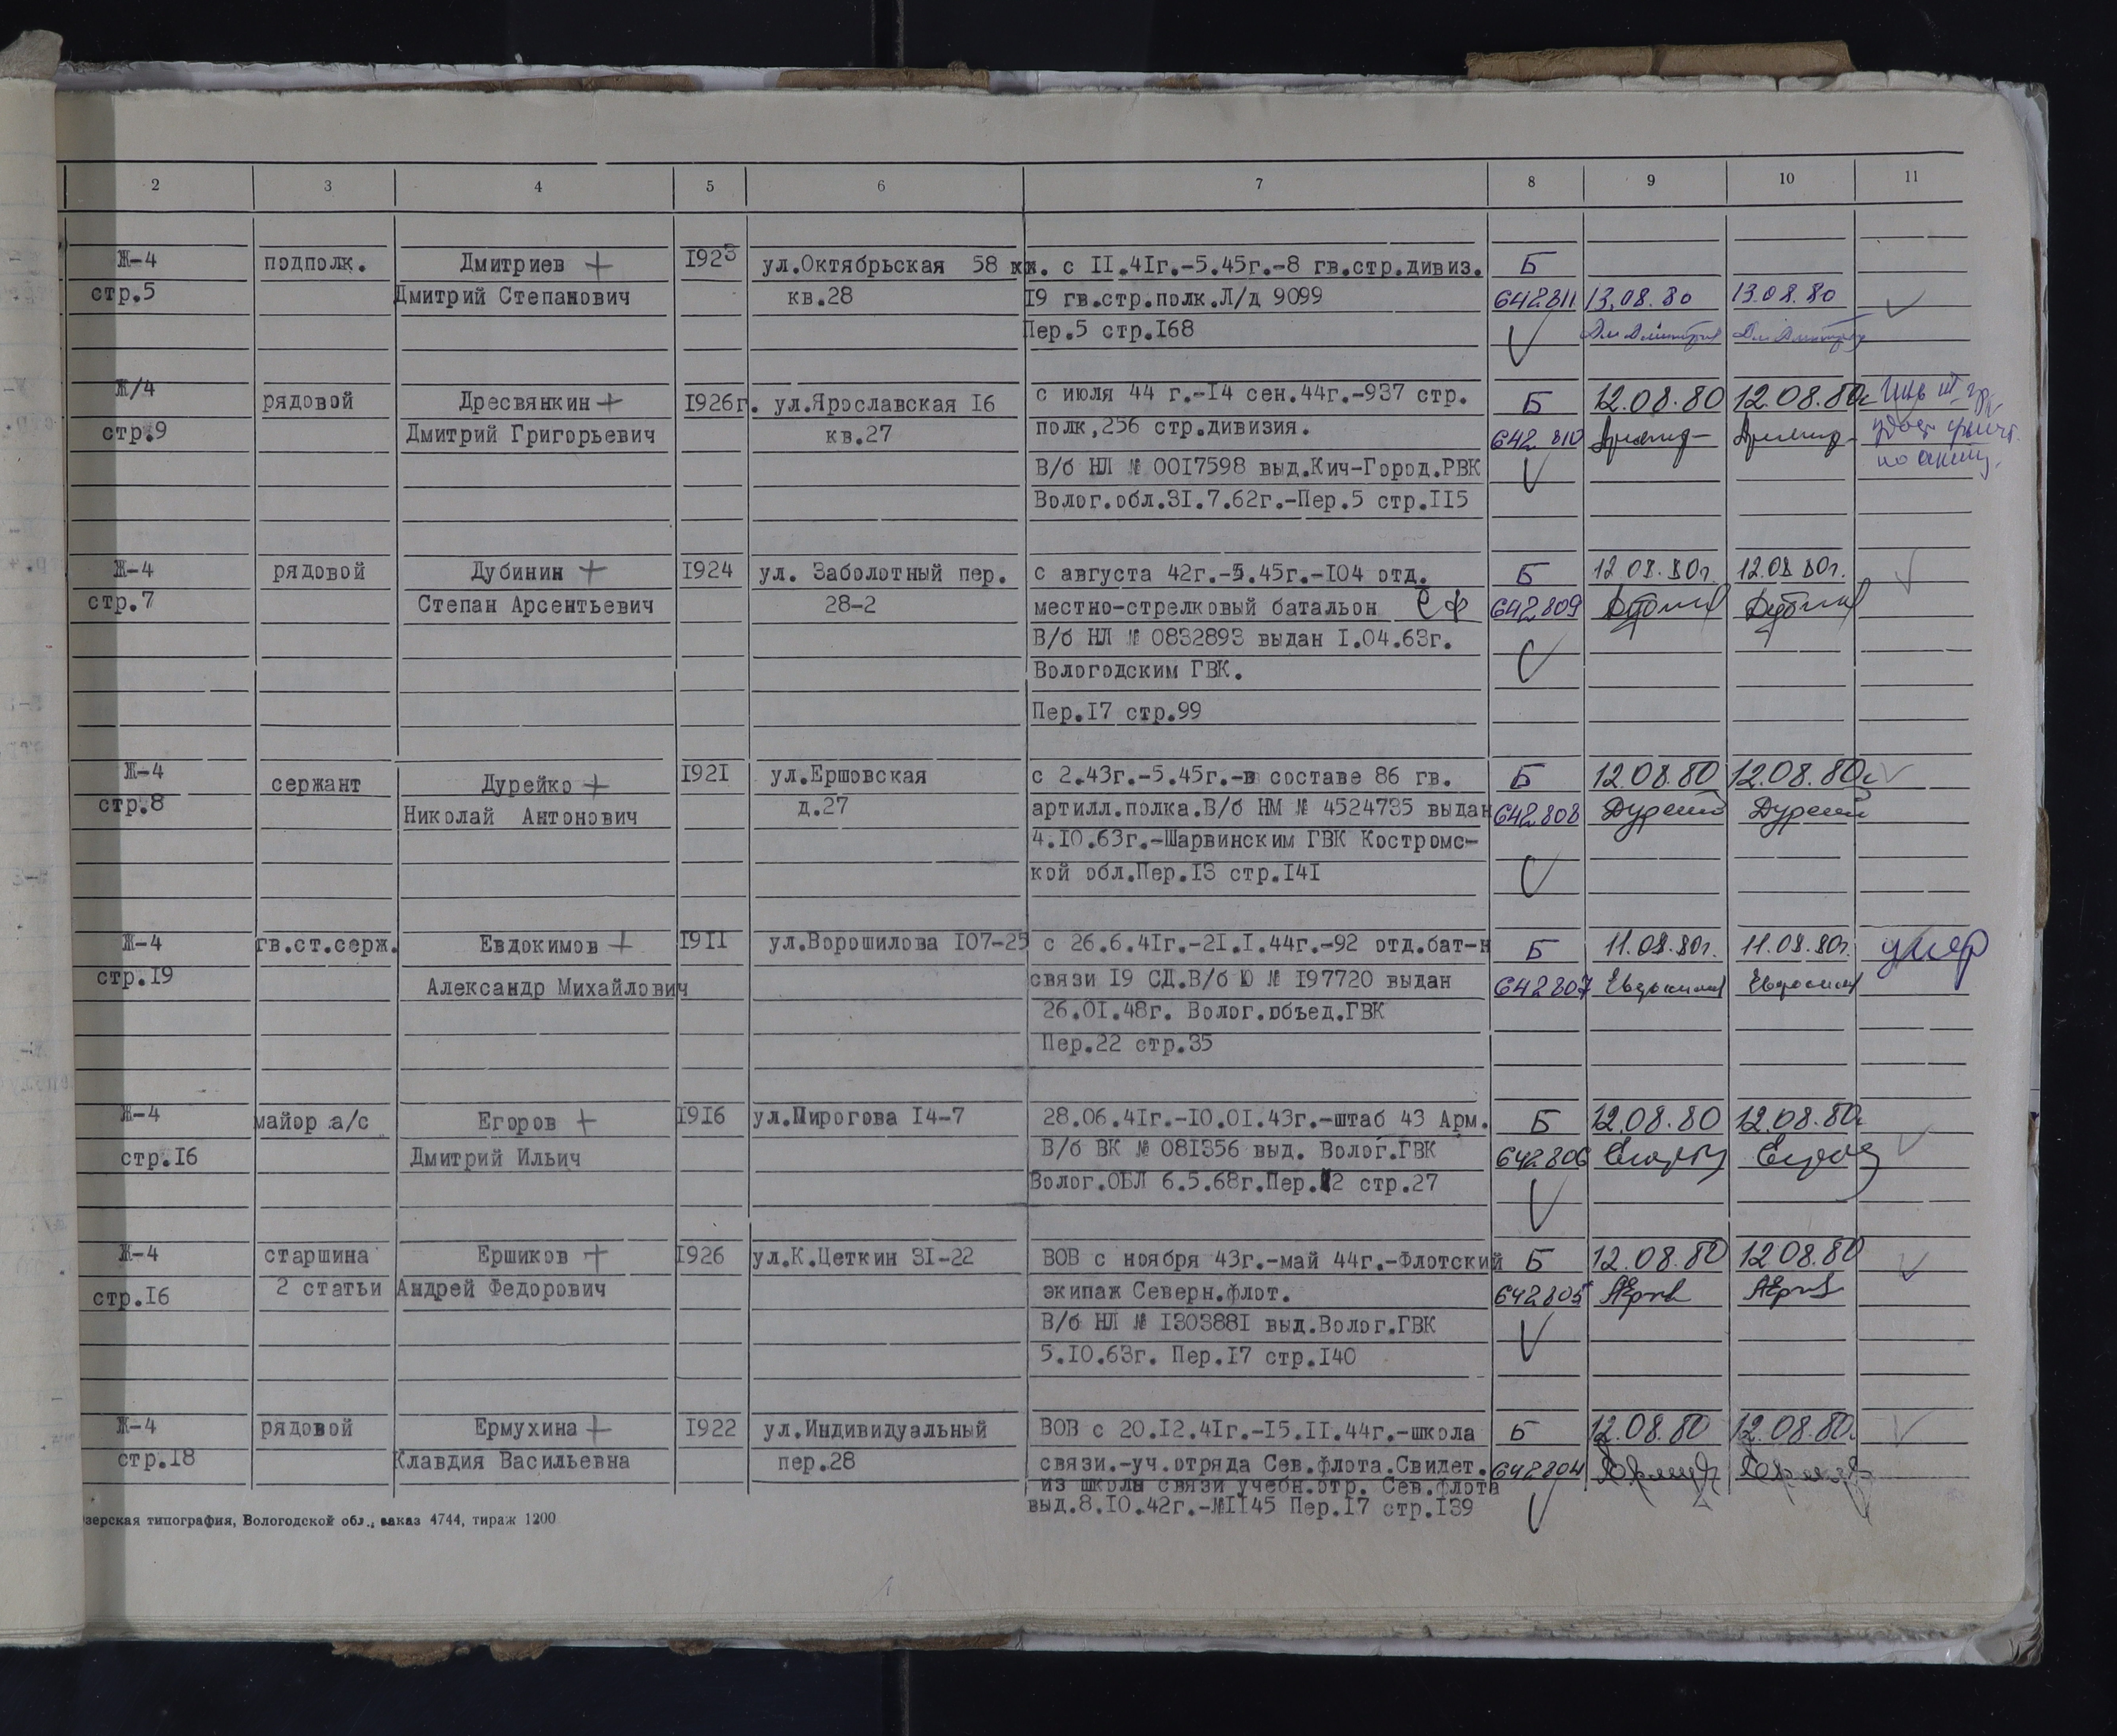 2 3 4 5 6 7 8 9 10 11
Ж-4 подполк. Дмитриев + 1923 ул.Октябрьская 58 с 11.41г.-5.45г.-8 гв.стр.дивиз. Б
стр.5 Дмитрий Степанович кв.28 19 гв.стр.полк.Л/д 9099 642811 13.08.80 13.08.80
Пер.5 стр.168
Ж/4 рядовой Дресвянкин + 1926г. ул.Ярославская 16 с июля 44 г.-14 сен.44г.-937 стр. Б 12.08.80 12.08.80г
стр.9 Дмитрий Григорьевич кв.27 полк,256 стр.дивизия. 642810
В/б НЛ № 0017598 выд.Кич-Город.РВК
Волог.обл.31.7.62г.-Пер.5 стр.115
Ж-4 рядовой Дубинин + 1924 ул. Заболотный пер. с августа 42г.-5.45г.-104 отд. Б 12.08.80г. 12.08.80г.
стр.7 Степан Арсентьевич 28-2 местно-стрелковый батальон СФ 642809
В/б НЛ № 0832893 выдан 1.04.63г.
Вологодским ГВК.
Пер.17 стр.99
Ж-4 сержант Дурейко + 1921 ул.Ершовская с 2.43г.-5.45г.-в составе 86 гв. Б 12.08.80 12.08.80г
стр.8 Николай Антонович д.27 артилл.полка.В/б НМ № 4524735 выдан 642808
4.10.63г.-Шарвинским ГВК Костромс-
кой обл.Пер.13 стр.141
Ж-4 гв.ст.серж. Евдокимов + 1911 ул.Ворошилова 107-25 с 26.6.41г.-21.1.44г.-92 отд.бат-н Б 11.08.80г. 11.08.80г. умер
стр.19 Александр Михайлович связи 19 СД.В/б Ю № 197720 выдан 642807 Евдокимов Евдокимов
26.01.48г. Волог.объед.ГВК
Пер.22 стр.35
Ж-4 майор а/с Егоров + 1916 ул.Пирогова 14-7 28.06.41г.-10.01.43г.-штаб 43 Арм. Б 12.08.80 12.08.80г
стр.16 Дмитрий Ильич В/б ВК № 081356 выд. Волог.ГВК 642806
Волог.ОБЛ 6.5.68г.Пер.12 стр.27
Ж-4 старшина Ершиков + 1926 ул.К.Цеткин 31-22 ВОВ с ноября 43г.-май 44г.-Флотский Б 12.08.80 12.08.80
стр.16 2 статьи Андрей Федорович экипаж Северн.флот. 642805
В/б НЛ № 1303881 выд.Волог.ГВК
5.10.63г. Пер.17 стр.140
Ж-4 рядовой Ермухина + 1922 ул.Индивидуальный ВОВ с 20.12.41г.-15.11.44г.-школа Б 12.08.80 12.08.80г
стр.18 Клавдия Васильевна пер.28 связи.-уч.отряда Сев.флота.Свидет. 642804
из школы связи учебн.отр. Сев.флота
выд.8.10.42г.-№1145 Пер.17 стр.139
зерская типография, Вологодской обл., заказ 4744, тираж 1200